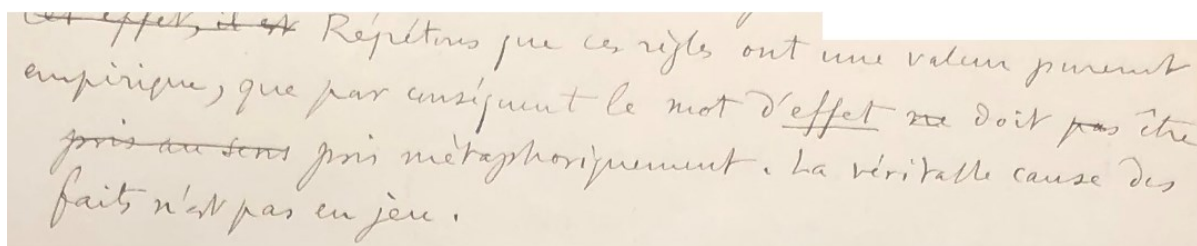 ~~Cet effet, il est~~ Répétons que ces règles ont une valeur purement
empirique, que par conséquent le mot d'effet ~~ne~~ doit ~~pas~~ être
~~pris au sens~~ pris métaphoriquement. La véritable cause des
faits n'est pas en jeu.